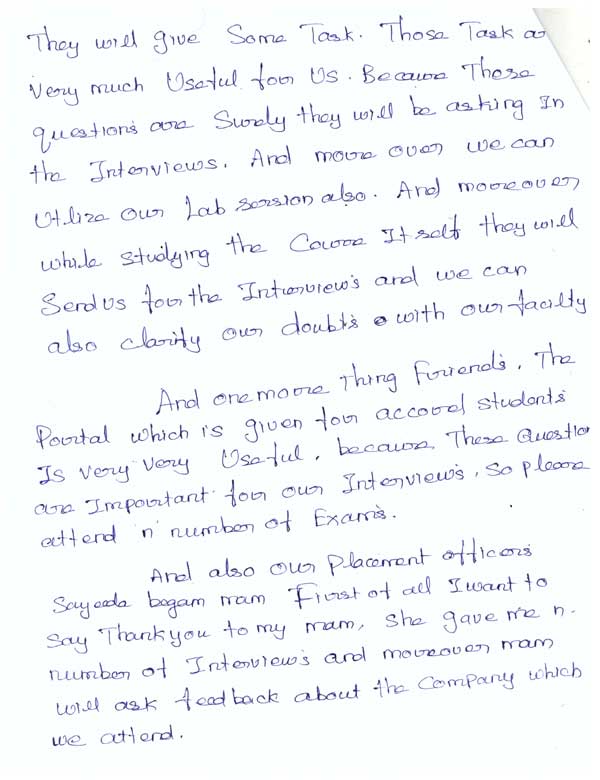 They will give Some Task. Those Task are
Very much Useful for Us. Because These
questions are Surely they will be asking In
the Interviews. And more over we can
Utilize Our Lab session also. And moreover
while studying the Course Itself they will
Send us for the Interviews and we can
also clarify our doubts with our faculty
And one more Thing Friends, The
Portal which is given for accord students
Is very very Useful, because These Question
are Important for our Interviews, So please
attend 'n' number of Exams.
And also our Placement officers
Sayeeda begam mam First of all I want to
Say Thank you to my mam, She gave me n.
number of Interviews and moreover mam
will ask feedback about the Company which
we attend.